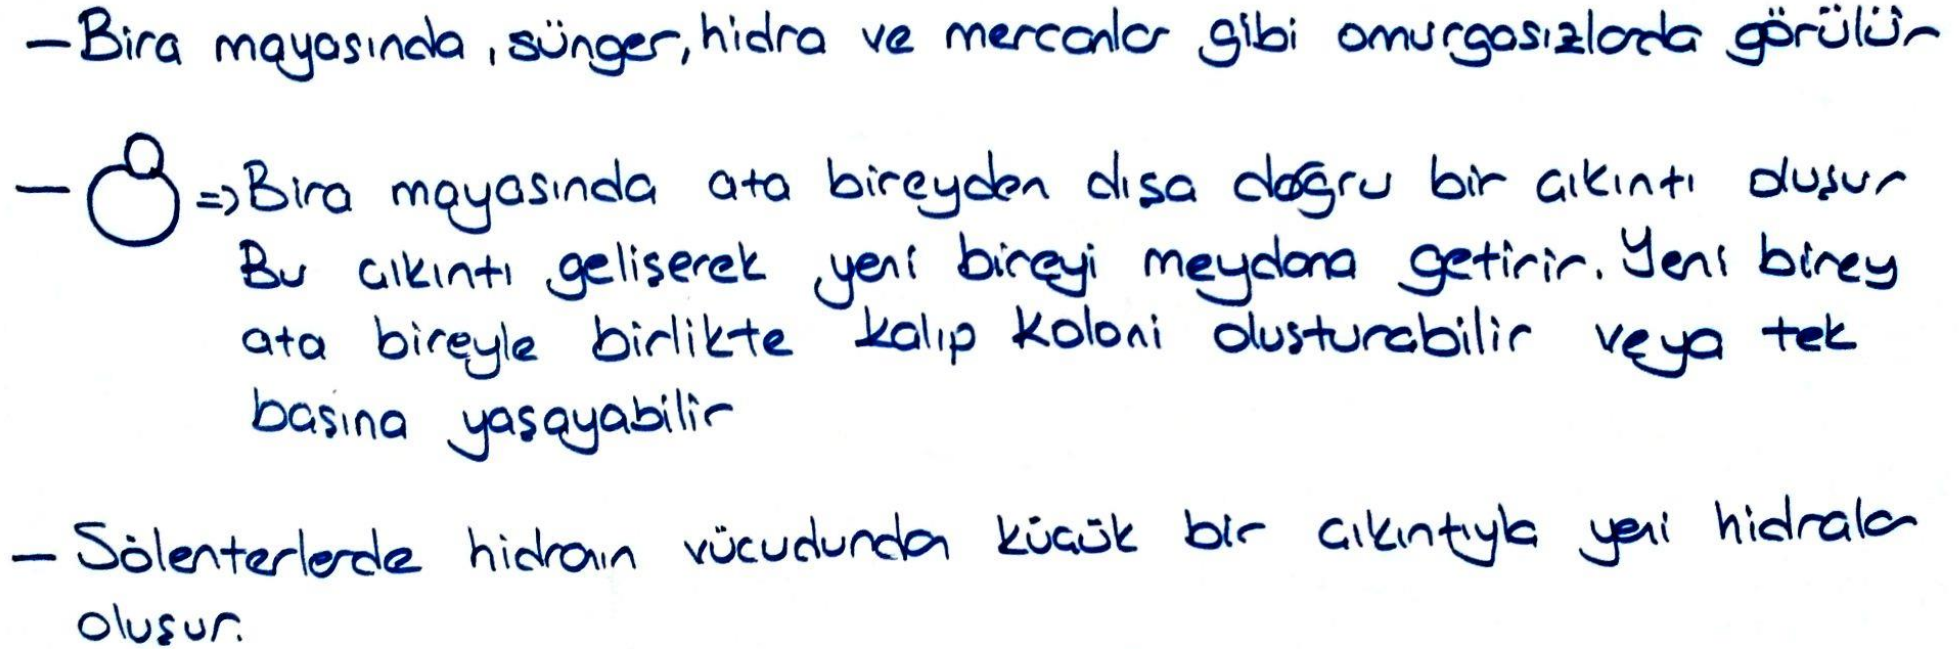 – Bira mayasında, sünger, hidra ve mercanlar gibi omurgasızlarda görülür
– => Bira mayasında ata bireyden dışa doğru bir çıkıntı oluşur
Bu çıkıntı gelişerek yeni bireyi meydana getirir. Yeni birey
ata bireyle birlikte kalıp koloni oluşturabilir veya tek
başına yaşayabilir
– Sölenterlerde hidranın vücudundan küçük bir çıkıntıyla yeni hidralar
oluşur.